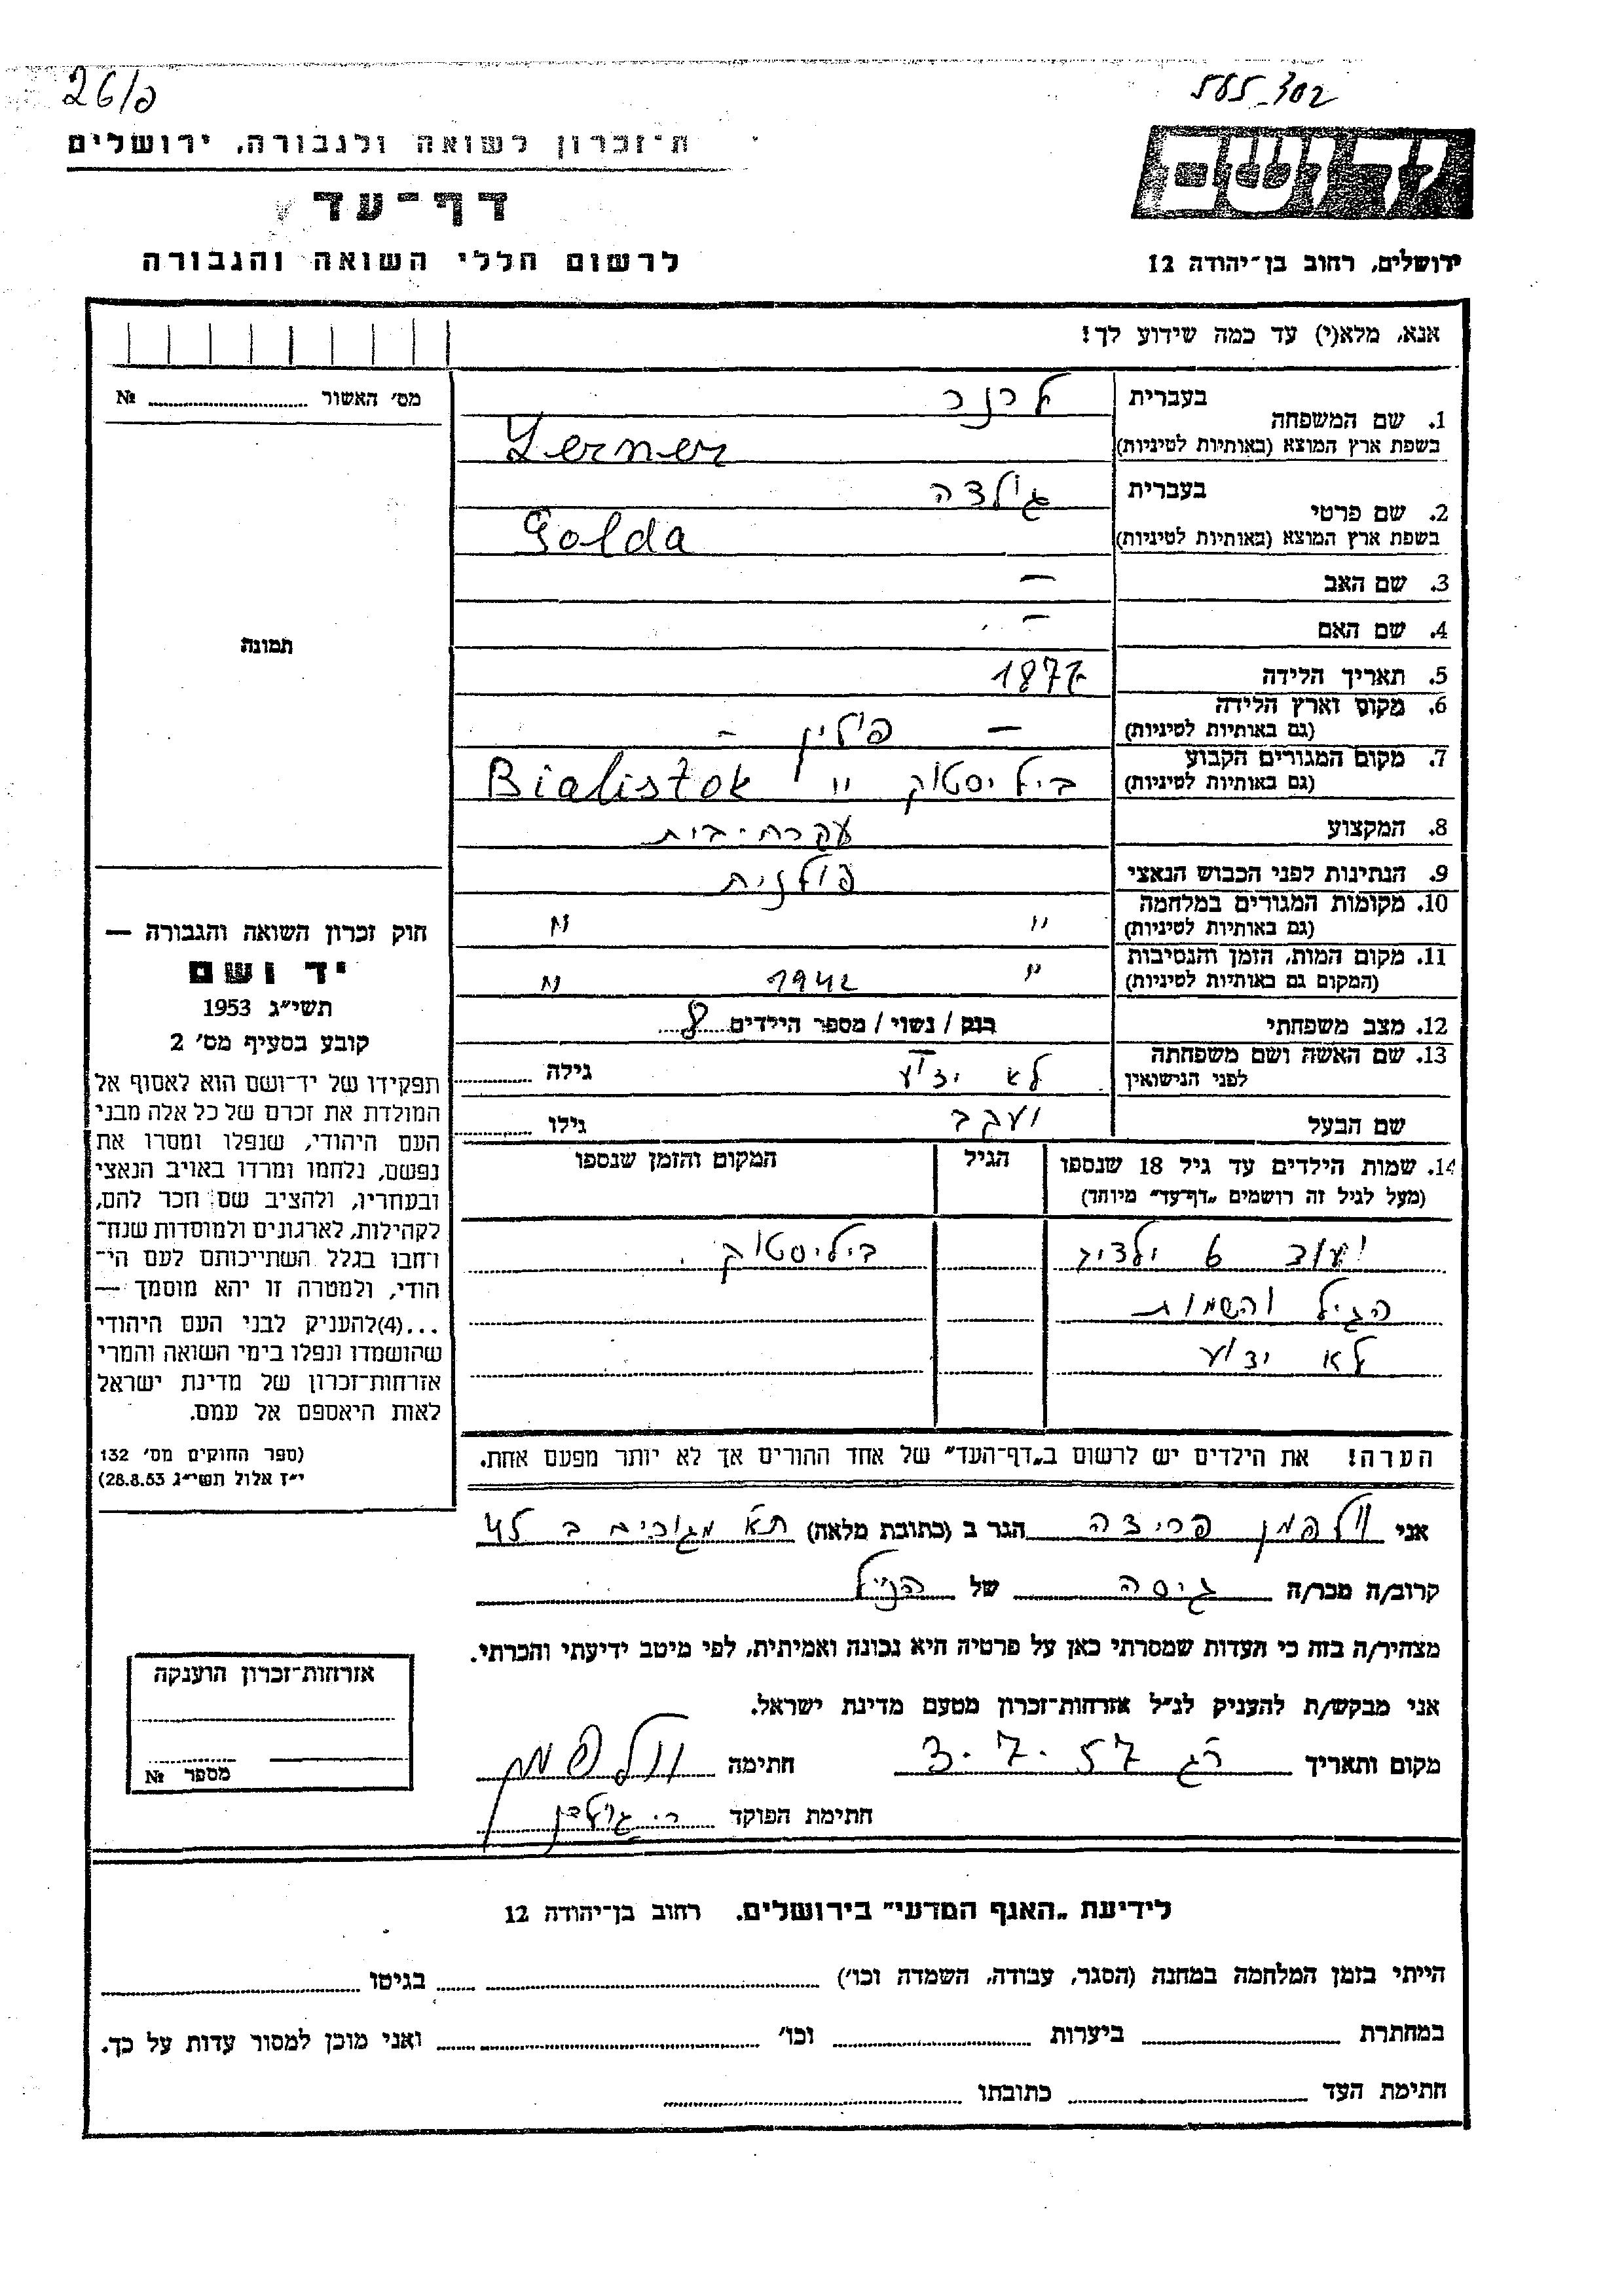 26/פ
565-302
ת-זכרון לשואה ולגבורה, ירושלים
ידושם
דף-עד
לרשום חללי השואה והגבורה
ירושלים, רחוב בן-יהודה 12
אנא, מלא(י) עד כמה שידוע לך!
מס׳ האשור № 
1. שם המשפחה
בעברית לרנר
בשפת ארץ המוצא (באותיות לטיניות) Lerner
2. שם פרטי
בעברית גולדה
בשפת ארץ המוצא (באותיות לטיניות) Golda
3. שם האב –
4. שם האם –
תמונה
5. תאריך הלידה 1877
6. מקום וארץ הלידה
(גם באותיות לטיניות) – פולין –
7. מקום המגורים הקבוע
(גם באותיות לטיניות) ביליסטוק " Bialistok
8. המקצוע עקרת-בית
9. הנתינות לפני הכבוש הנאצי פולנית
10. מקומות המגורים במלחמה
(גם באותיות לטיניות) " "
11. מקום המות, הזמן והנסיבות
(המקום גם באותיות לטיניות) " 1942 "
12. מצב משפחתי רווק / נשוי / מספר הילדים 8
13. שם האשה ושם משפחתה
לפני הנישואין לא ידוע גילה
שם הבעל יעקב גילו
14. שמות הילדים עד גיל 18 שנספו
(מעל לגיל זה רושמים „דף-עד" מיוחד)
הגיל
המקום והזמן שנספו
ועוד 6 ילדים ביליסטוק.
הגיל והשמות
לא ידוע
הערה! את הילדים יש לרשום ב„דף-העד" של אחד ההורים אך לא יותר מפעם אחת.
חוק זכרון השואה והגבורה —
יד ושם
תשי״ג 1953
קובע בסעיף מס׳ 2
תפקידו של יד-ושם הוא לאסוף אל
המולדת את זכרם של כל אלה מבני
העם היהודי, שנפלו ומסרו את
נפשם, נלחמו ומרדו באויב הנאצי
ובעוזריו, ולהציב שם וזכר להם,
לקהילות, לארגונים ולמוסדות שנח-
רחבו בגלל השתייכותם לעם הי-
הודי, ולמטרה זו יהא מוסמך —
...(4)להעניק לבני העם היהודי
שהושמדו ונפלו בימי השואה והמרי
אזרחות-זכרון של מדינת ישראל
לאות היאספם אל עמם.
(ספר החוקים מס׳ 132
י״ז אלול תשי״ג 28.8.53)
אני וולפמן פרידה הגר ב (כתובת מלאה) ת״א מגורים ב 45
קרוב/ה מכר/ה גיסה של הנ״ל
מצהיר/ה בזה כי העדות שמסרתי כאן על פרטיה היא נכונה ואמיתית, לפי מיטב ידיעתי והכרתי.
אני מבקש/ת להעניק לנ״ל אזרחות-זכרון מטעם מדינת ישראל.
מקום ותאריך רג 3.7.57 חתימה וולפמן
חתימת הפוקד
אזרחות-זכרון הוענקה
מספר №
לידיעת „האגף המדעי" בירושלים. רחוב בן-יהודה 12
הייתי בזמן המלחמה במחנה (הסגר, עבודה, השמדה וכו׳) בגיטו
במחתרת ביערות וכו׳ ואני מוכן למסור עדות על כך.
חתימת העד כתובתו